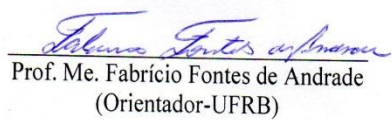 Fabrício Fontes de Andrade
Prof. Me. Fabrício Fontes de Andrade
(Orientador-UFRB)